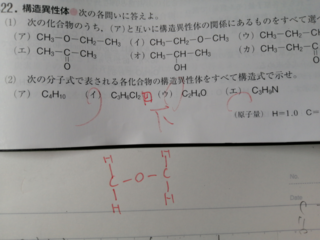 22. 構造異性体 次の各問いに答えよ。
(1) 次の化合物のうち，(ア)と互いに構造異性体の関係にあるものをすべて選
(ア) CH₃-O-CH₂-CH₃ (イ) CH₃-O-CH₃ (ウ) CH₃-CH₂-CH
(エ) CH₃-C-CH₃ (オ) CH₃-CH-CH₃ (カ) CH₃-CH₂-C
O OH O
(2) 次の分子式で表される各化合物の構造異性体をすべて構造式で示せ。
(ア) C₄H₁₀ (イ) (ウ) C₂H₄O (エ)
(原子量) H=1.0 C=
H H
C-O-C
H H